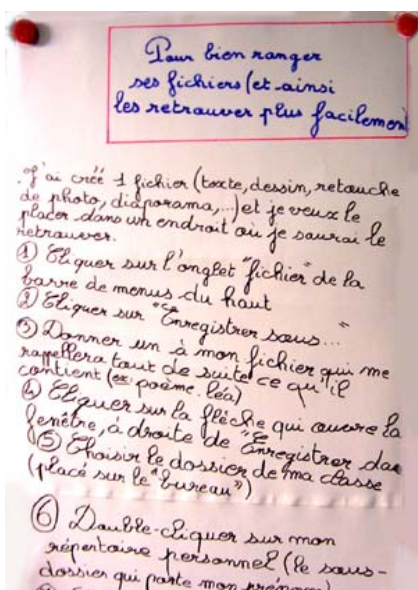 Pour bien ranger
ses fichiers (et ainsi
les retrouver plus facilement
J'ai créé 1 fichier (texte, dessin, retouche
de photo, diaporama,...) et je veux le
placer dans un endroit où je saurai le
retrouver.
① Cliquer sur l'onglet "fichier" de la
barre de menus du haut
② Cliquer sur "Enregistrer sous..."
③ Donner un à mon fichier qui me
rappellera tout de suite ce qu'il
contient (ex: poème. léa)
④ Cliquer sur la flèche qui ouvre la
fenêtre, à droite de "Enregistrer dans
⑤ Choisir le dossier de ma classe
(placé sur le "bureau")
⑥ Double-cliquer sur mon
répertoire personnel (le sous-
dossier qui porte mon prénom)